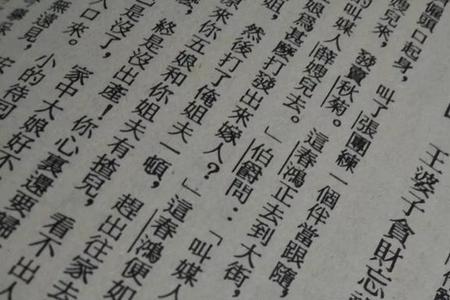 王婆子貪財忘
偏頭口起身，叫了張團練一個伴當跟隨，
嫂兒來，發賣秋菊。這春鴻正去到大街，
的叫媒人薛嫂兒去。」伯爵問：「叫媒人
娘爲甚麼打發出來嫁人？」這春鴻便如
姐，然後打了俺姐夫一頓，趕出往家去
原來你五娘和你姐夫有揸兒，看不出人
終是沒出產！你心裏還要歸
已是沒了，家中大娘好不
人口來。小的待回
無遠見，